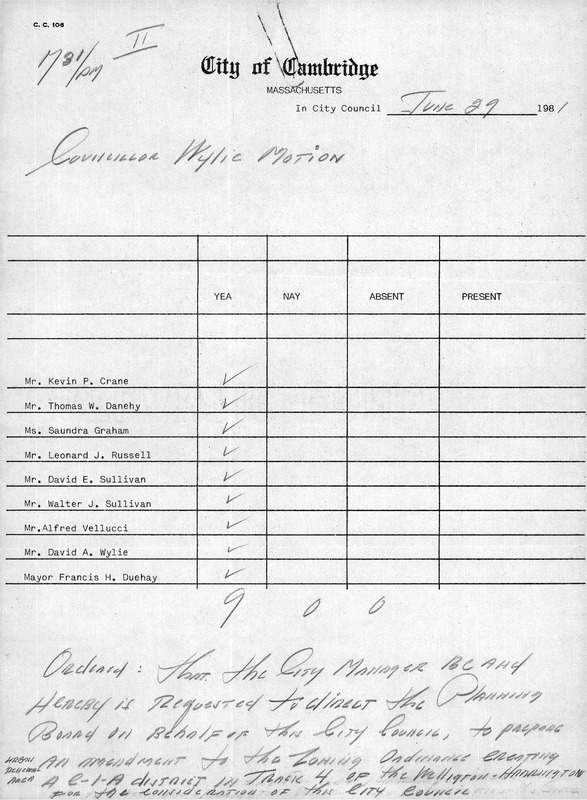 C. C. 106
7 31/PM II
City of Cambridge
MASSACHUSETTS
In City Council June 29 1981
Councillor Wylie Motion
YEA NAY ABSENT PRESENT
Mr. Kevin P. Crane ✓
Mr. Thomas W. Danehy ✓
Ms. Saundra Graham ✓
Mr. Leonard J. Russell ✓
Mr. David E. Sullivan ✓
Mr. Walter J. Sullivan ✓
Mr.Alfred Vellucci ✓
Mr. David A. Wylie ✓
Mayor Francis H. Duehay ✓
9 0 0
Ordered: That the City Manager be and
Hereby is Requested to direct the Planning
Board on Behalf of this City Council, to prepare
An amendment to the Zoning Ordinance creating
Urban Renewal Area
A C-1-A district in Track 4 of the Wellington-Harrington
for the consideration of this City Council